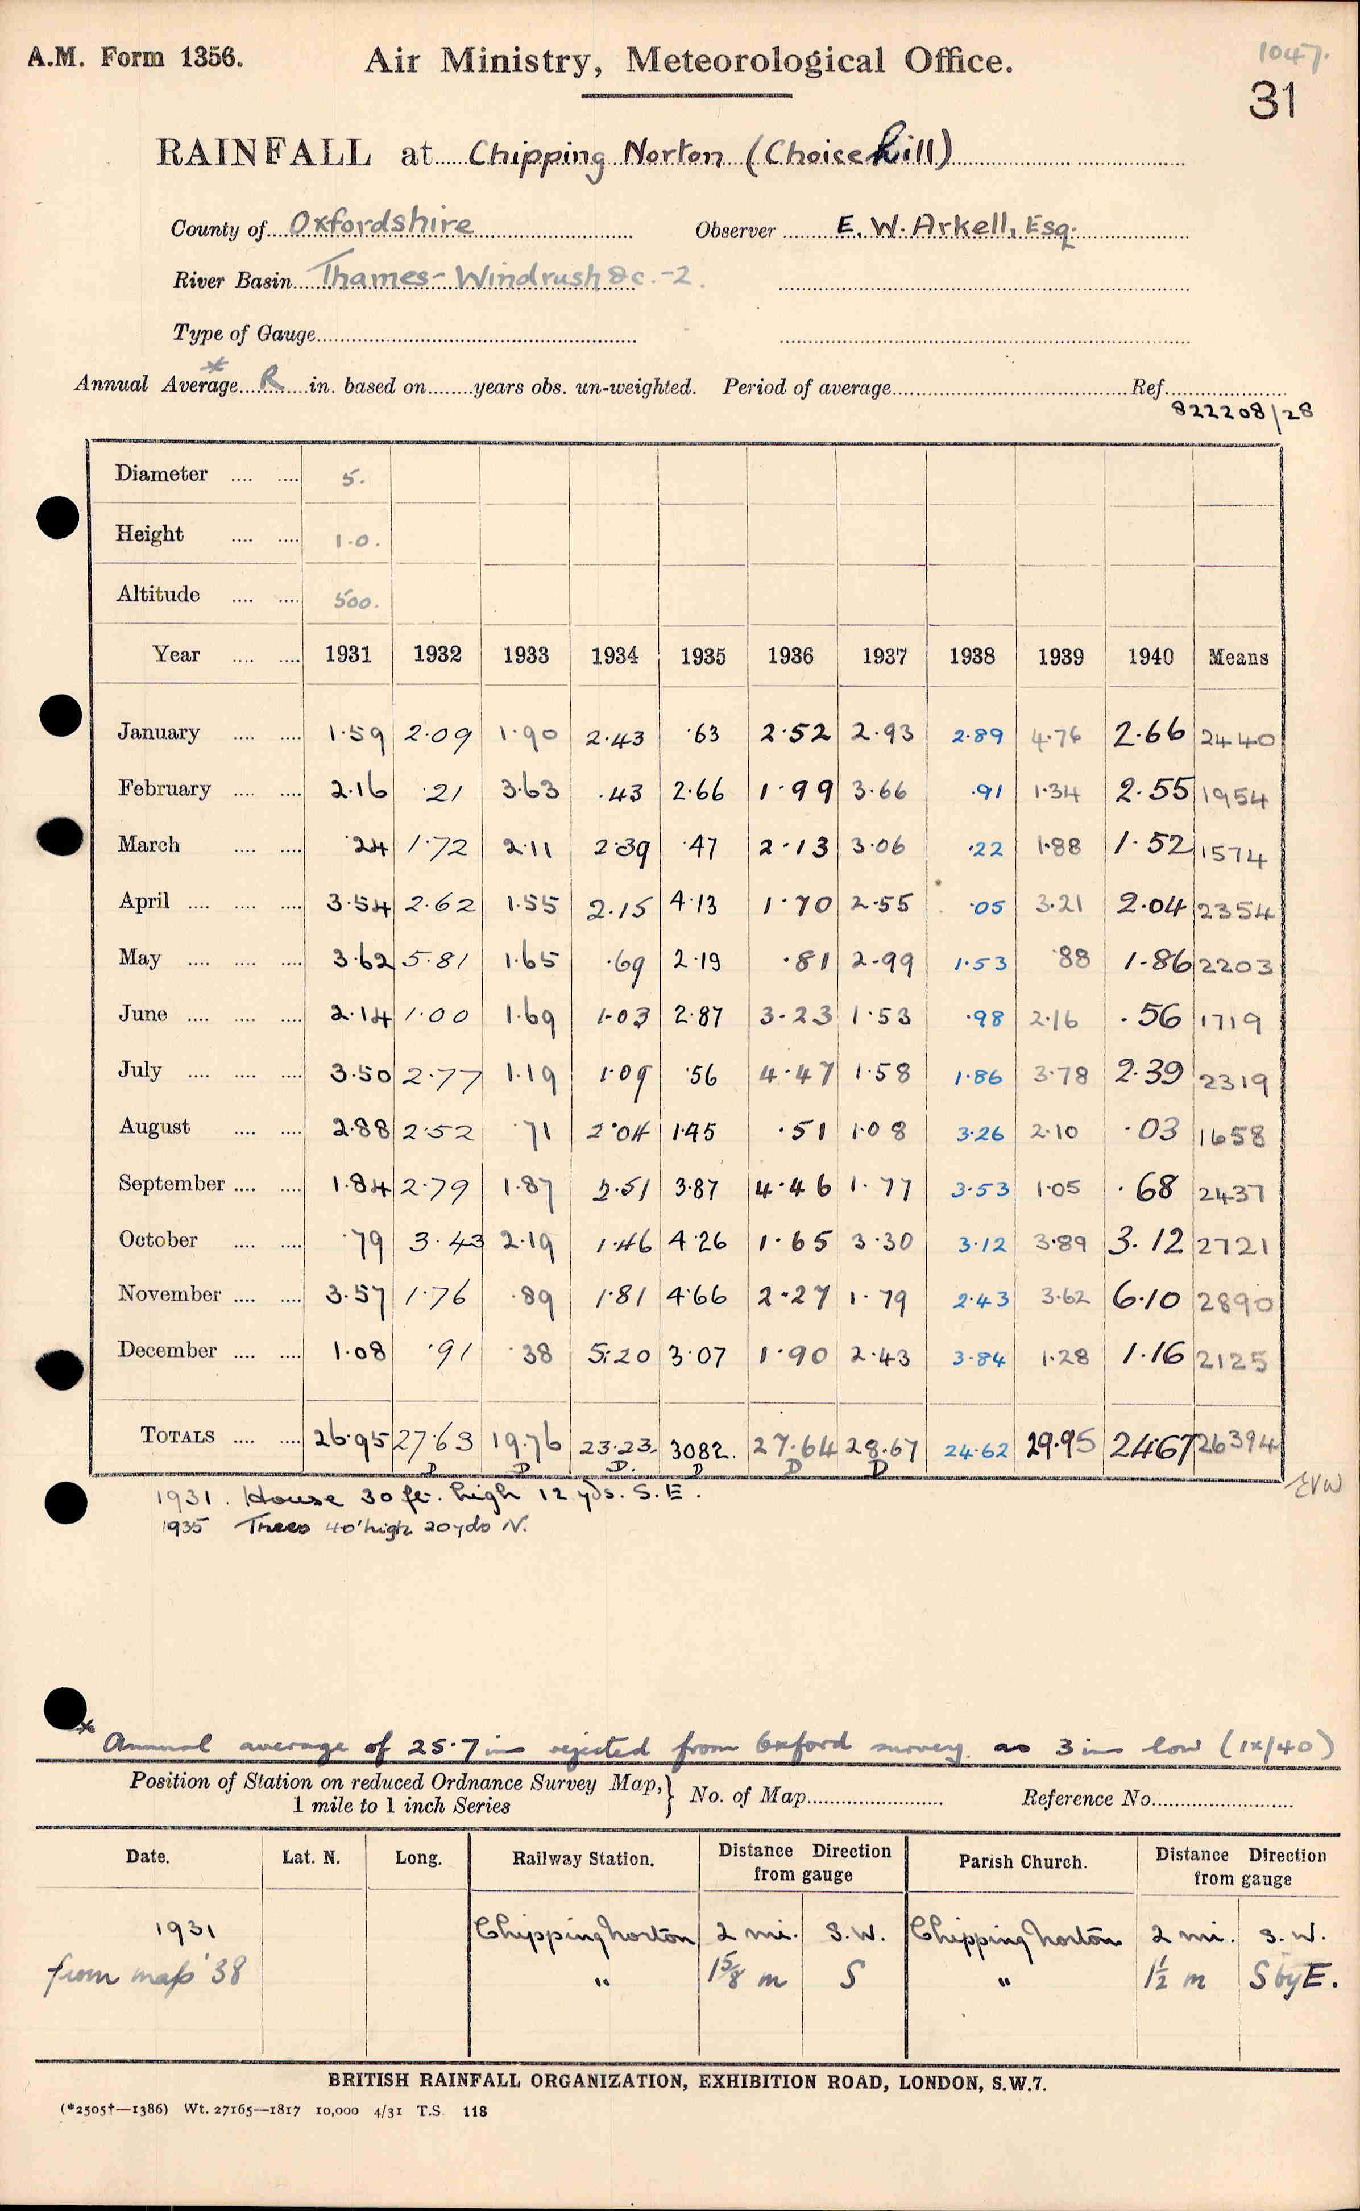 A.M. Form 1356.
Air Ministry, Meteorological Office.
1047.
31
RAINFALL at Chipping Norton (Choice hill)
County of Oxfordshire Observer E. W. Arkell, Esq.
River Basin Thames - Windrush &c. - 2.
Type of Gauge
Annual Average * R in. based on years obs. un-weighted. Period of average Ref.
822208/28
Diameter 5.
Height 1.0.
Altitude 500.
Year 1931 1932 1933 1934 1935 1936 1937 1938 1939 1940 Means
January 1.59 2.09 1.90 2.43 .63 2.52 2.93 2.89 4.76 2.66 2440
February 2.16 .21 3.63 .43 2.66 1.99 3.66 .91 1.34 2.55 1954
March .24 1.72 2.11 2.39 .47 2.13 3.06 .22 1.88 1.52 1574
April 3.54 2.62 1.55 2.15 4.13 1.70 2.55 .05 3.21 2.04 2354
May 3.62 5.81 1.65 .69 2.19 .81 2.99 1.53 .88 1.86 2203
June 2.14 1.00 1.69 1.03 2.87 3.23 1.53 .98 2.16 .56 1719
July 3.50 2.77 1.19 1.09 .56 4.47 1.58 1.86 3.78 2.39 2319
August 2.88 2.52 .71 2.04 1.45 .51 1.08 3.26 2.10 .03 1658
September 1.84 2.79 1.87 2.51 3.87 4.46 1.77 3.53 1.05 .68 2437
October .79 3.43 2.19 1.46 4.26 1.65 3.30 3.12 3.89 3.12 2721
November 3.57 1.76 .89 1.81 4.66 2.27 1.79 2.43 3.62 6.10 2890
December 1.08 .91 .38 5.20 3.07 1.90 2.43 3.84 1.28 1.16 2125
TOTALS 26.95 27.63 19.76 23.23. 3082. 27.64 28.67 24.62 29.95 24.67 26394
D D D. D D D
1931. House 30 ft. high 12 yds. S.E.
1935 Trees 40' high 20 yds N.
* Annual average of 25.7 ins rejected from Oxford survey as 3 ins low (ix/40)
Position of Station on reduced Ordnance Survey Map, } No. of Map Reference No.
1 mile to 1 inch Series
Date. Lat. N. Long. Railway Station. Distance Direction from gauge Parish Church. Distance Direction from gauge
1931 Chipping Norton 2 mi. S.W. Chipping Norton 2 mi. S.W.
from map '38 " 1 5/8 m S " 1 1/2 m S by E.
BRITISH RAINFALL ORGANIZATION, EXHIBITION ROAD, LONDON, S.W.7.
(*2505†—1386) Wt. 27165—1817 10,000 4/31 T.S. 118